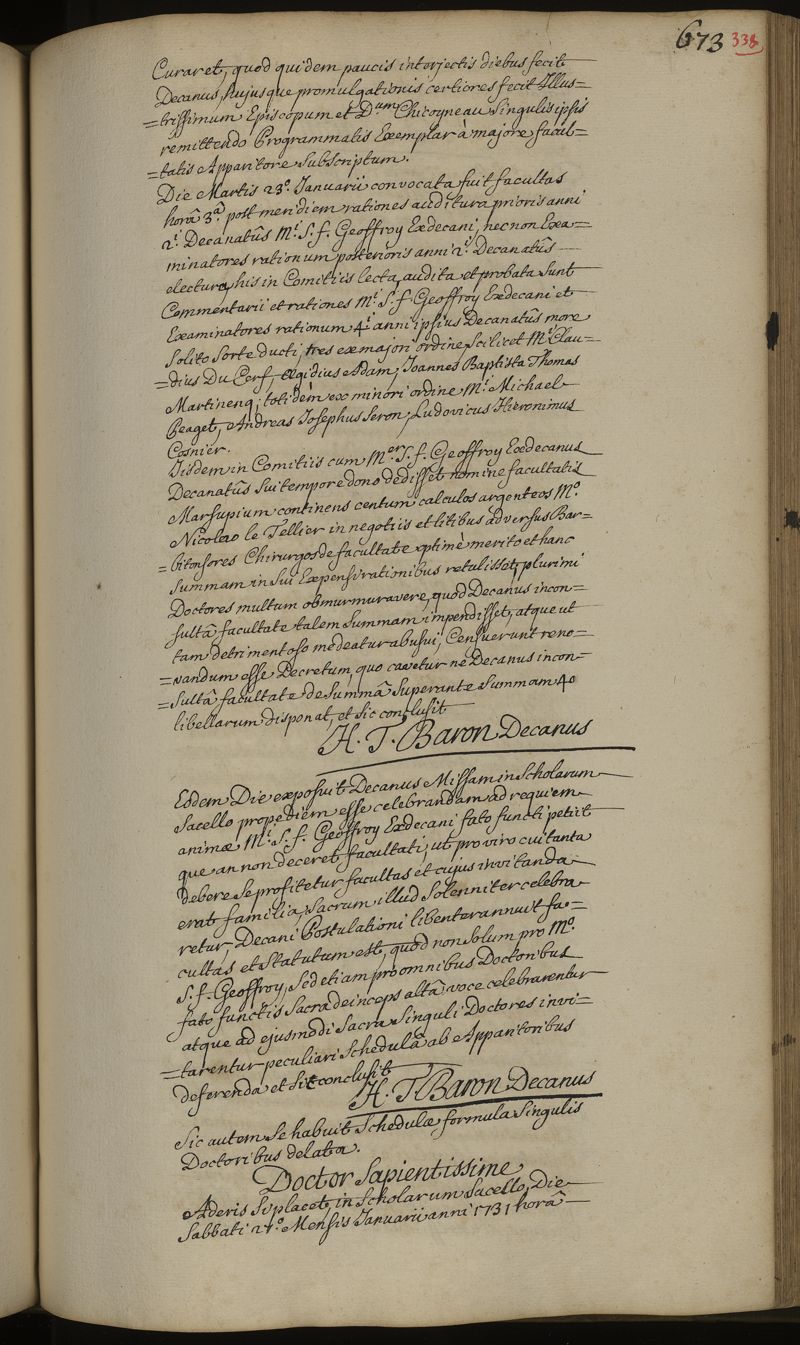 673 338
Curaret, quod quidem paucis interjectis diebus fecit
Decanus, hujusque promulgationis certiores fecit Illus=
=trissimum Episcopum et D.um Chicoyneau singulis ipsis
remittendo Programmatis Exemplar à majore facul=
=tatis Apparitore subscriptum.
Die Martis 23º. Januarii convocata fuit facultas
horâ 3.ª post meridiem rationes auditura prioris anni
2.i Decanatûs M.i S. f. Geoffroy Exdecani, necnon Exa=
minatores rationum posterioris anni 2.i Decanatûs
electura, his in Comitiis lecta, audita et probata sunt
Commentarii et rationes M.i S. f. Geoffroy Exdecani et
Examinatores rationum 4.i anni ipsius Decanatûs more
solito sorte ducti, tres ex majori ordine scilicet M.i Clau=
=dius Du Cerf, Ægidius Adam, Joannes Baptista Thomas
Martinenq; totidem ex minori ordine M.i Michael
Peaget, Andreas Josephus Seron, Ludovicus Hieronimus
Cosnier.
Iisdem in Comitiis cum M.er S. f. Geoffroy Exdecanus
Decanatûs sui tempore dono dedisset nomine facultatis
Marsupium continens centum calculos argenteos M.º
Nicolao le Tellier in negotiis et litibus adversus Bar=
=bitonsores Chirurgos de facultate optimè merito et hanc
summam in sui Expensi rationibus retulisset, plurimi
Doctores multum obmurmuravere, quod Decanus incon=
sultâ facultate talem summam impendisset, atque ut
tam detrimentoso medeatur abusui, Censuerunt reno=
=vandum esse Decretum, quo cavetur ne Decanus incon=
=sultâ facultate de summâ superante summam 40
libellarum disponat, et sic conclusit
H. T. Baron Decanus
Eodem Die exposuit Decanus Missam in Scholarum
Sacello propediem esse celebrandam ad requiem
animæ M.i S. f. Geoffroy Exdecani fato functi petiit
que an non deceret facultati, ut pro viro cui tanta
debere se profitetur facultas et cujus invitanda
erat familia, sacrum illud solenniter celebra
retur, Decani Postulationi libenter annuit fa=
cultas et statutum est, quod non solum pro M.º
S. f. Geoffroy, sed etiam pro omnibus Doctoribus
fato functis sacra deinceps altâ voce celebrarentur
atque ad ejusmodi sacra singuli Doctores invi=
=tarentur peculiari schedulâ ab Apparitoribus
deferenda et sic conclusit
H. T. Baron Decanus
Sic autem se habuit schedulæ formula singulis
Doctoribus delata.
Doctor Sapientissime
Aderis si placet, in Scholarum Sacello, Die
Sabbati 27.º Mensis Januarii anni 1731 horâ